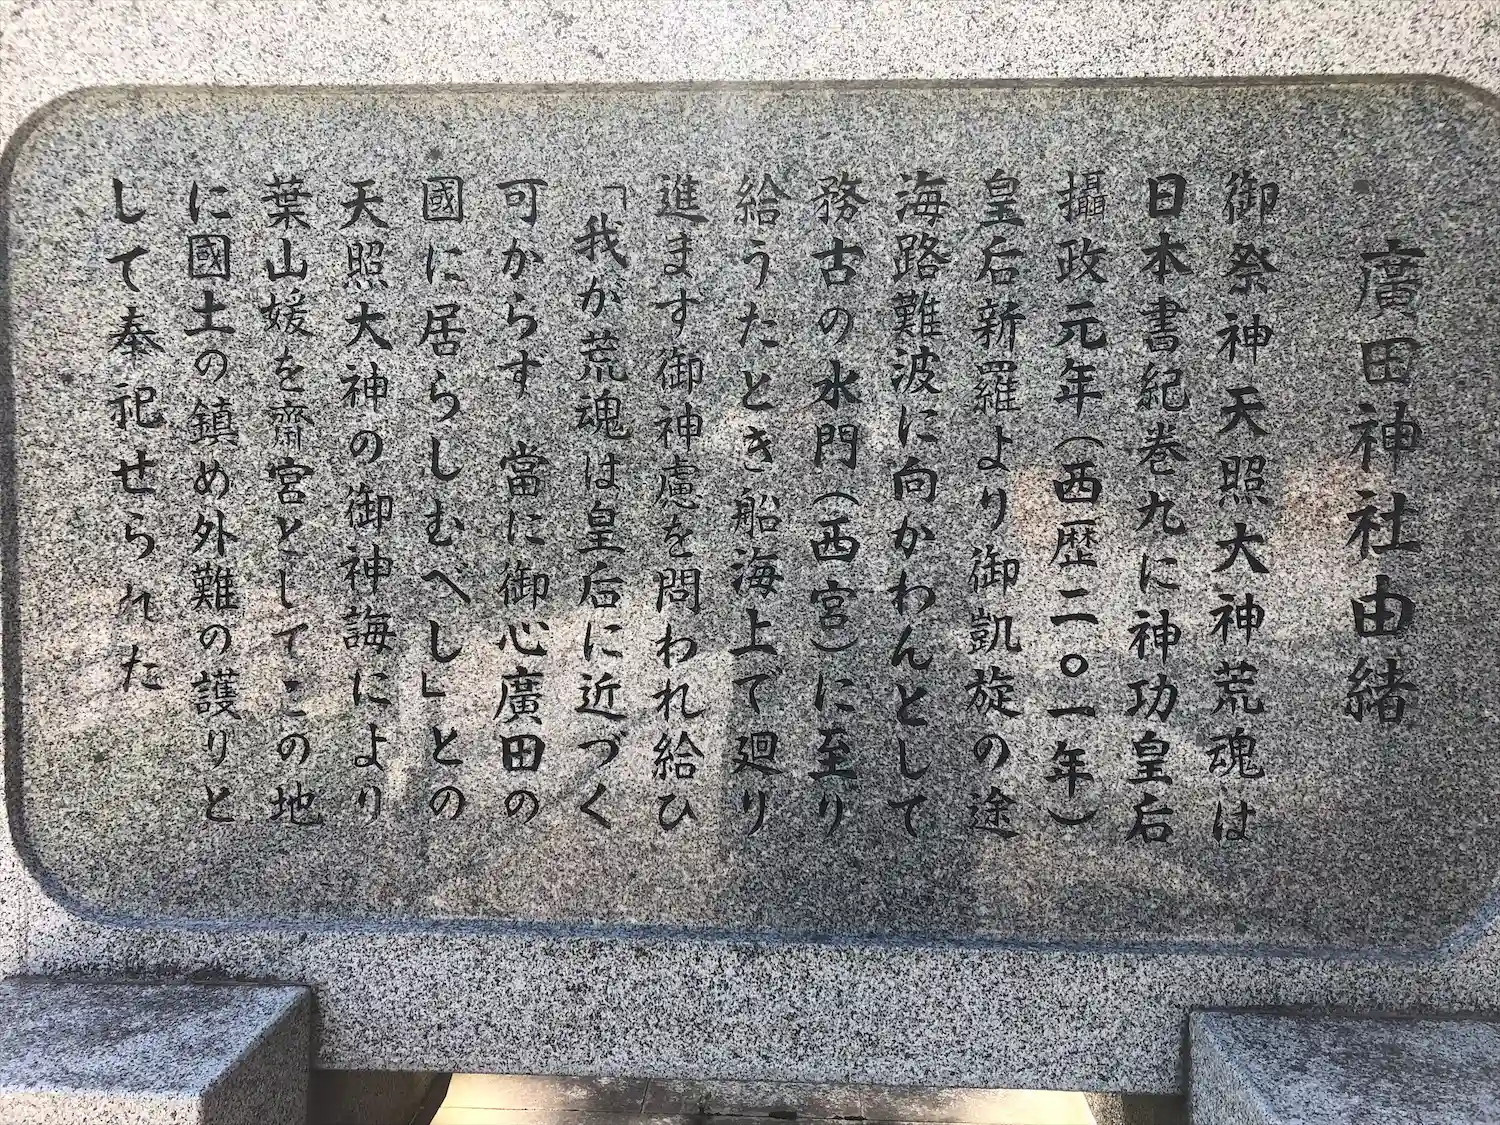 廣田神社由緒
御祭神天照大神荒魂は
日本書紀巻九に神功皇后
攝政元年（西歴二〇一年）
皇后新羅より御凱旋の途
海路難波に向かわんとして
務古の水門（西宮）に至り
給うたとき船海上で廻り
進ます御神慮を問われ給ひ
「我が荒魂は皇后に近づく
可からす當に御心廣田の
國に居らしむべし」との
天照大神の御神誨により
葉山媛を齋宮としてこの地
に國土の鎮め外難の護りと
して奉祀せられた